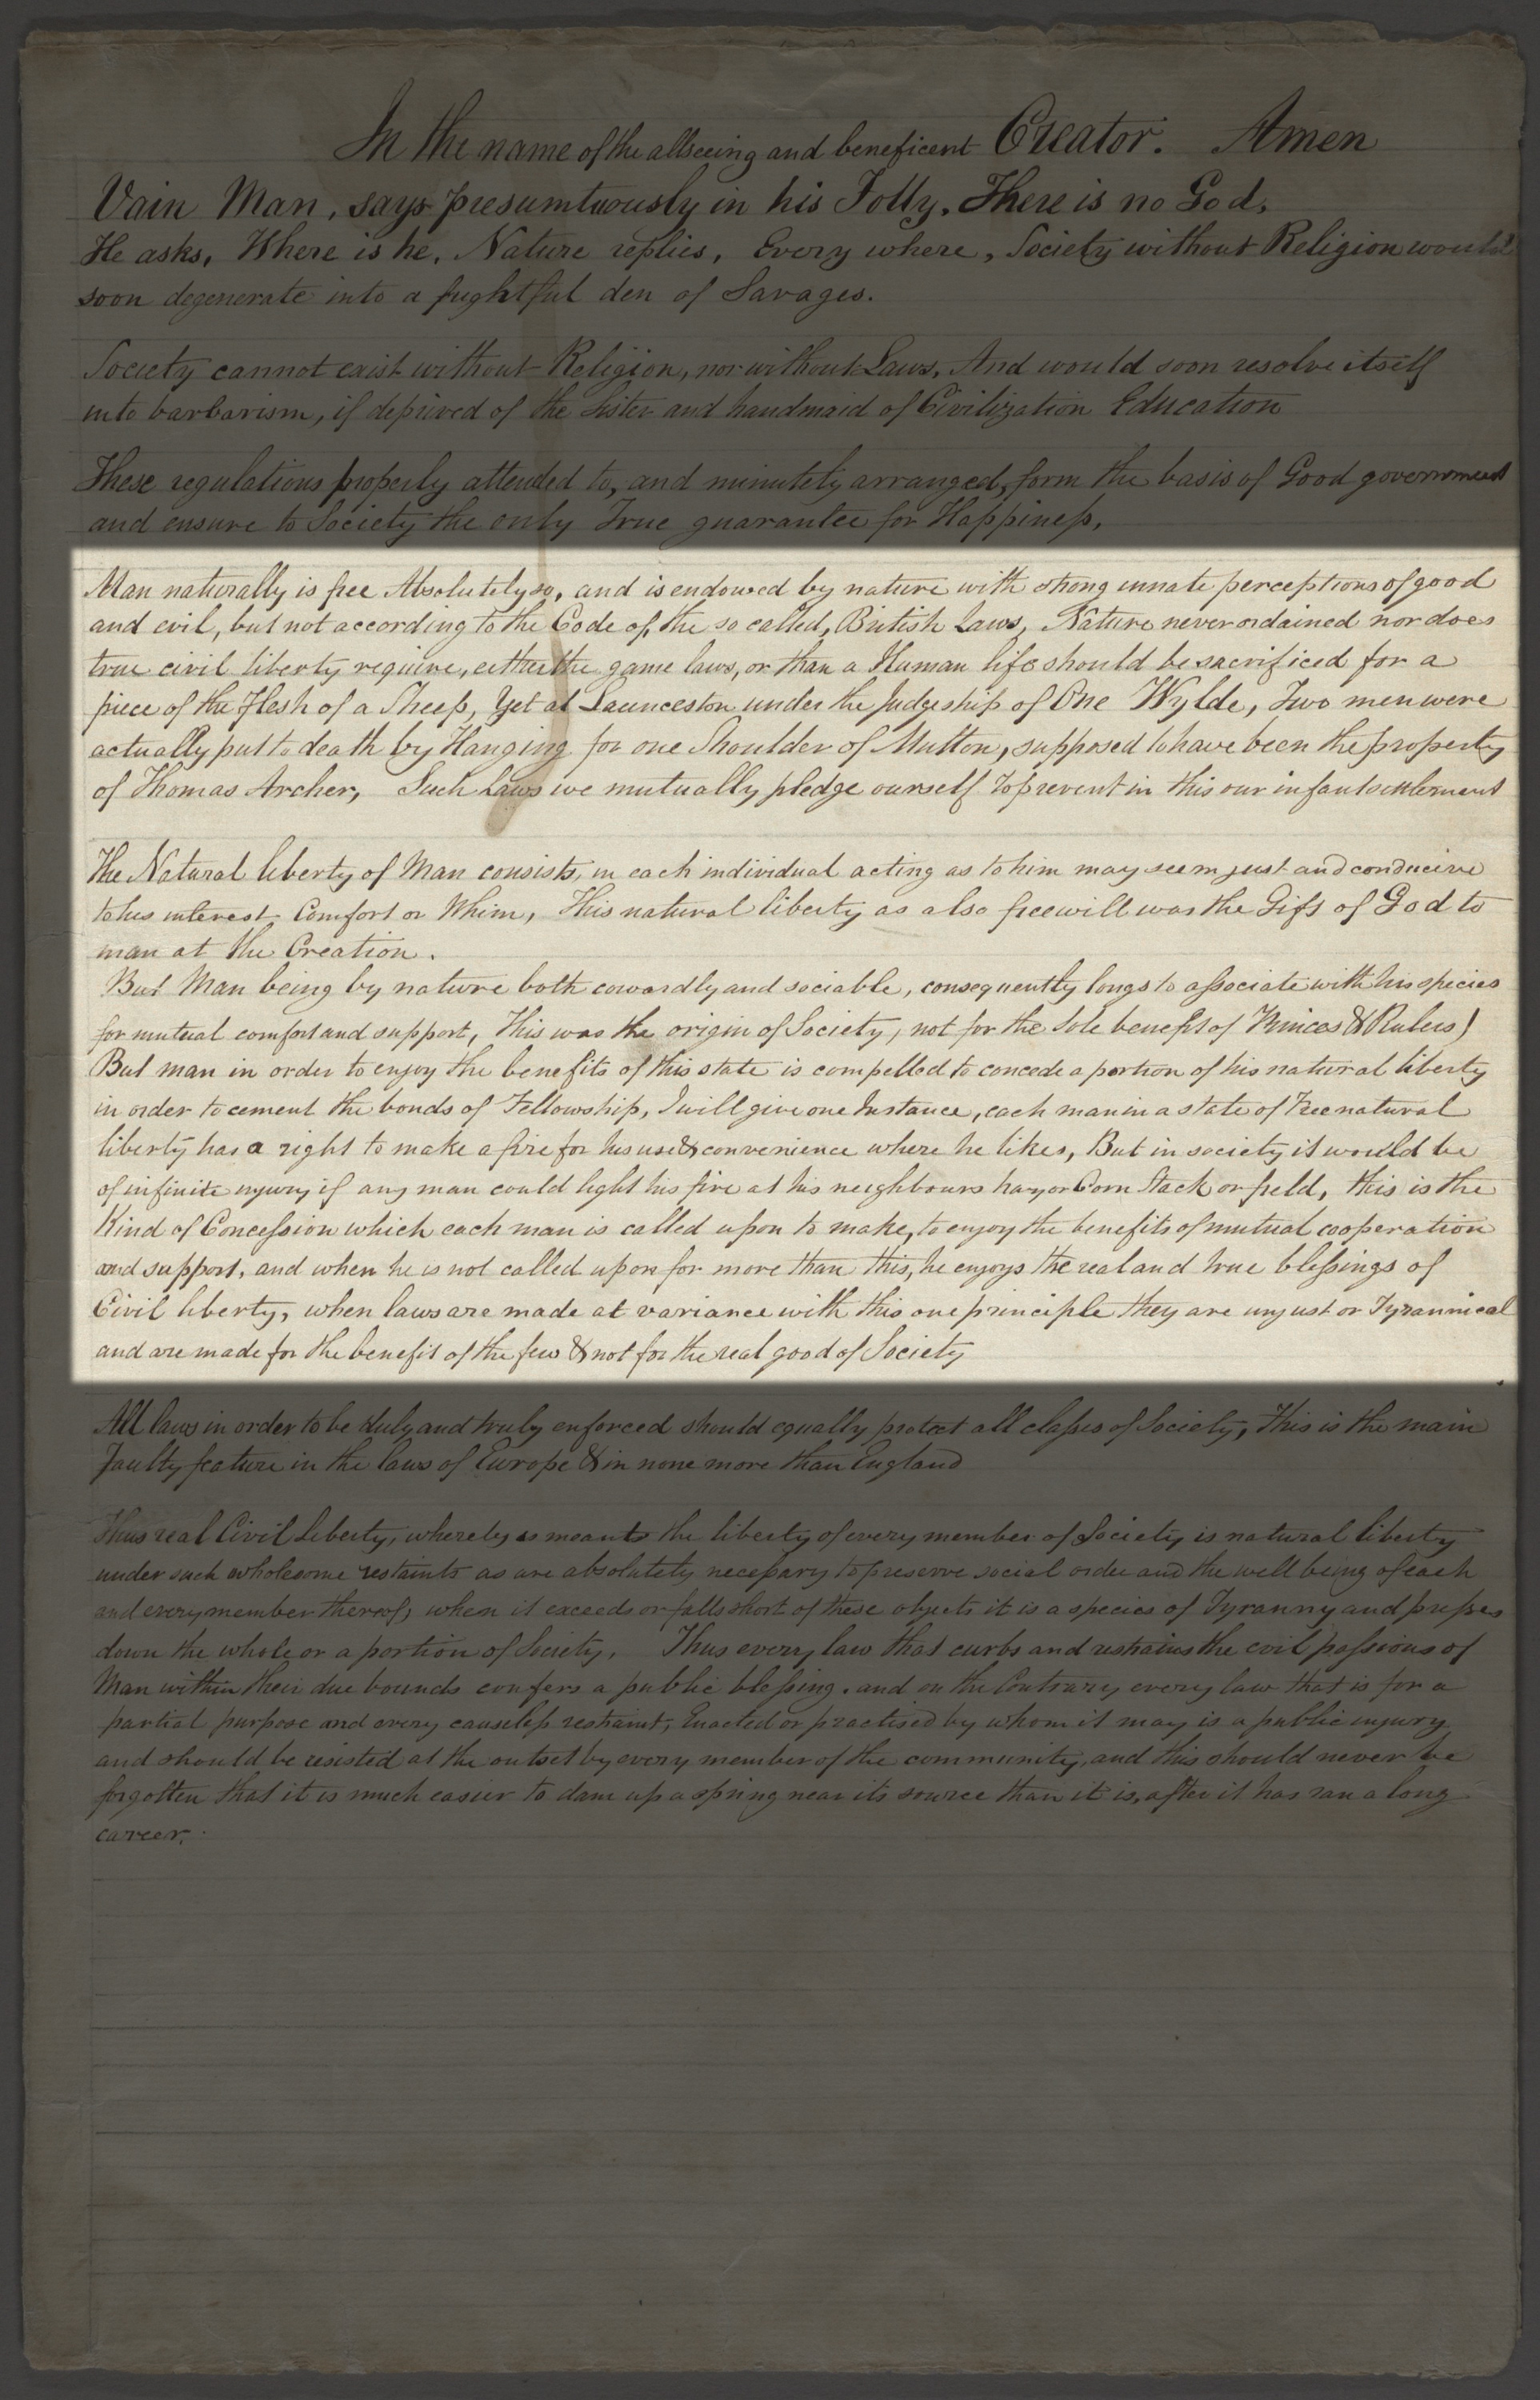 In the name of the allseeing and beneficent Creator. Amen
Vain Man, says presumtuously in his Folly. There is no God.
He asks, Where is he, Nature replies, Every where, Society without Religion would
soon degenerate into a frightful den of Savages.
Society cannot exist without Religion, nor without Laws, And would soon resolve itself
into barbarism, if deprived of the Sister and handmaid of Civilization Education
These regulations properly attended to, and minutely arranged, form the basis of Good government
and ensure to Society the only True guarantee for Happiness,
Man naturally is free Absolutely so, and is endowed by nature with strong innate perceptions of good
and evil, but not according to the Code of, the so called, British Laws, Nature never ordained nor does
true civil liberty require, either the game laws, or than a Human life should be sacrificed for a
piece of the Flesh of a Sheep, Yet at Launceston under the Judgeship of One Wylde, Two men were
actually put to death by Hanging for one Shoulder of Mutton, supposed to have been the property
of Thomas Archer, Such Laws we mutually pledge ourself to prevent in this our infant settlement
The Natural liberty of Man consists, in each individual acting as to him may seem just and conducive
to his interest Comfort or Whim, This natural liberty as also freewill was the Gift of God to
man at the Creation.
But Man being by nature both cowardly and sociable, consequently longs to associate with his species
for mutual comfort and support, This was the origin of Society, not for the Sole benefit of Princes & Rulers)
But man in order to enjoy the benefits of this state is compelled to concede a portion of his natural liberty
in order to cement the bonds of Fellowship, I will give one Instance, each man in a state of Free natural
liberty has a right to make a fire for his use & convenience where he likes, But in society it would be
of infinite injury if any man could light his fire at his neighbours hay or Corn Stack or field, this is the
Kind of Concession which each man is called upon to make, to enjoy the benefits of mutual cooperation
and support, and when he is not called upon for more than this, he enjoys the real and true blessings of
Civil liberty, when laws are made at variance with this one principle they are unjust or Tyrannical
and are made for the benefit of the few & not for the real good of Society
All laws in order to be duly and truly enforced should equally protect all classes of Society, This is the main
faulty feature in the laws of Europe & in none more than England
Thus real Civil Liberty, whereby is meant the liberty of every member of Society is natural liberty
under such wholesome restaints as are absolutely necessary to preserve social order and the well being of each
and every member thereof, when it exceeds or falls short of these objects it is a species of Tyranny and presses
down the whole or a portion of Society. Thus every law that curbs and restrains the evil passions of
Man within their due bounds confers a public blessing. and on the Contrary every law that is for a
partial purpose and every causeless restraint, Enacted or practised by whom it may is a public injury
and should be resisted at the outset by every member of the community, and this should never be
forgotten that it is much easier to dam up a spring near its source than it is, after it has ran a long
career.